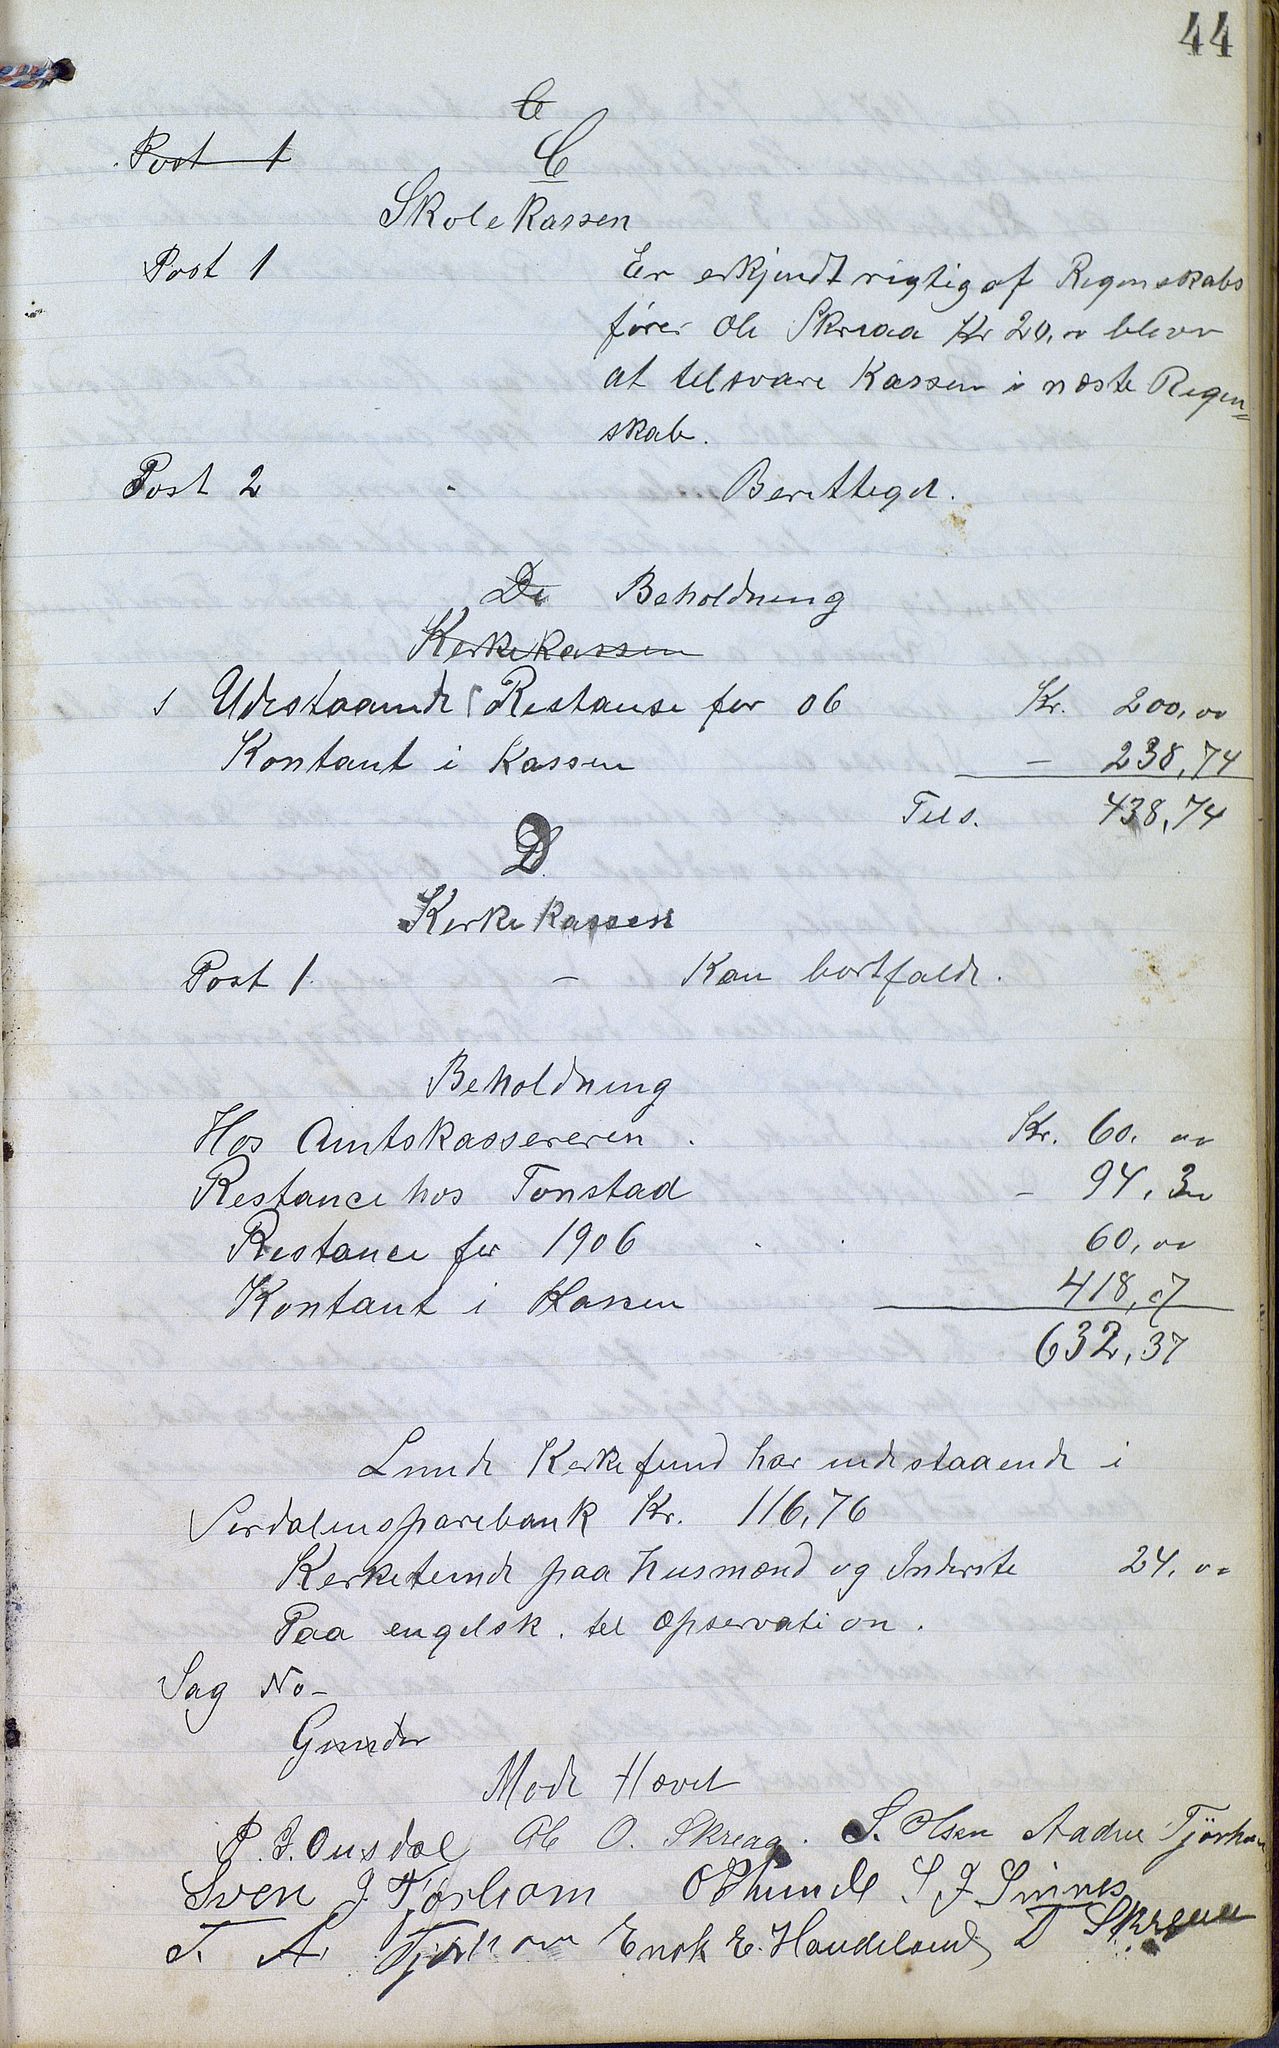 44
C
Post 1
C
Skolekassen
Post 1 Er erkjendt rigtig af Regenskabs
fører Ole Skreaa Kr 20,00 bliver
at tilsvare Kassen i næste Regen=
skab.
Post 2 Berettiget.
De Beholdning
Kerkekassen
Udestaaende Restanse for 06 Kr. 200,00
Kontant i Kassen — 238,74
Tils. 438,74
D
Kerkekassen
Post 1. — Kan bortfalde.
Beholdning
Hos Amtskassereren . Kr. 60,00
Restance hos Tonstad — 94,30
Restance for 1906 60,00
Kontant i Kassen 418,07
632,37
Lunde Kerkefund har indestaaende i
Serdalensparebank Kr. 116,76
Kerketiende paa husmænd og Inderste 24,00
Paa engelsk. tel Opservation.
Sag No—
Gunder
Møde Hævet
P. J. Ousdal Ole O. Skreaa. S. Olsen Aadne Tjørhom
Sven J. Tjørhom O P Lunde S J Sinnes
T. A. Tjørhom Enok E. Haudeland D Skreaa